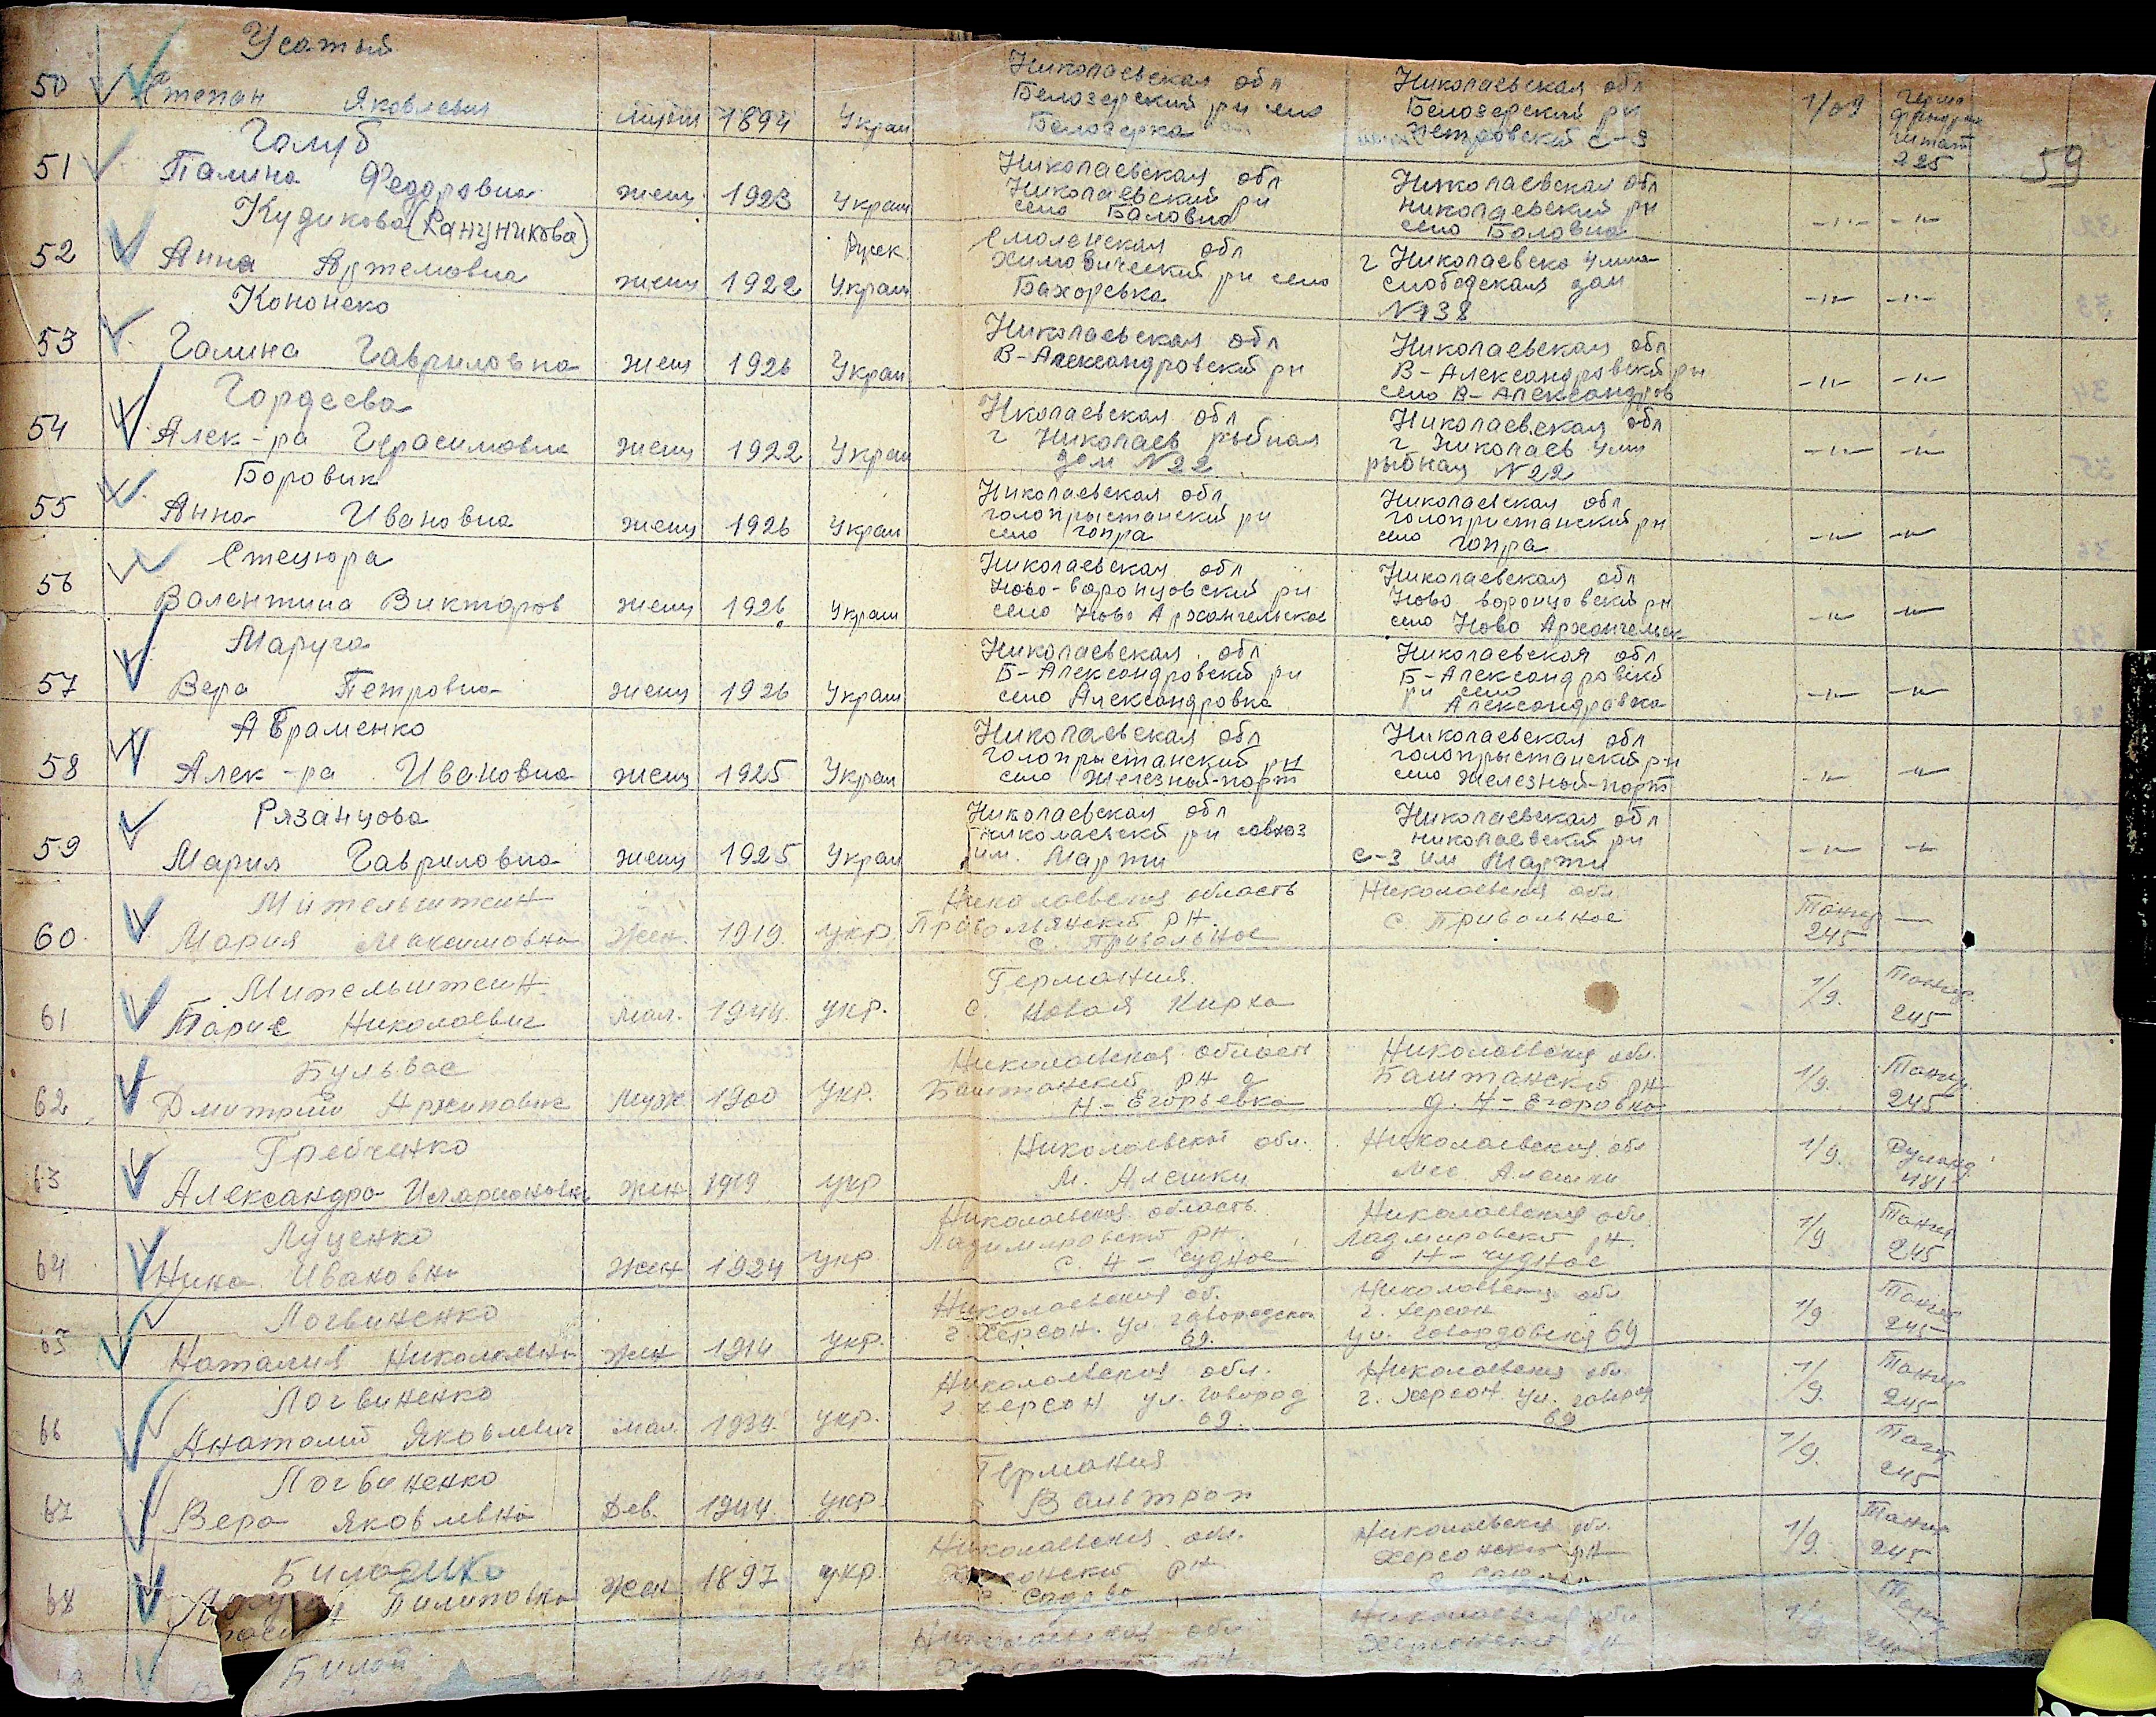 Усатый
50 Степан Яковлевич мущин 1894 Украи
Николаевская обл
Белозерский рн село
Белозерка
Николаевская обл
Белозерский рн
Петровский с-з
1/09
штат
225
59
Голуб
51 Палина Федоровна женщ 1923 Украи
Николаевская обл
Николаевский рн
село Баловна
Николаевская обл
николаевский рн
село Баловна
-"- -"-
Кудикова (Рануникова)
52 Анна Артемовна женщ 1922 Русск Украи
Смоленская обл
рн село
Бахоревка
г Николаевско улица
слободская дом
№38
-"- -"-
Кононеко
53 Галина Гавриловна женщ 1926 Украи
Николаевская обл
В-Александровский рн
Николаевская обл
В-Александровский рн
село В-Александров
-"- -"-
Гордеева
54 Алек-ра Герасимовна женщ 1922 Украи
Нколаевская обл
г Николаев рыбная
дом №22
Николаевская обл
г Николаев улиц
рыбная №22
-"- -"-
Боровик
55 Анна Ивановна женщ 1926 Украи
Николаевская обл
голопрыстанский рн
село Чопра
Николаевская обл
голопристанский рн
село Чопра
-"- -"-
Стецюра
56 Валентина Викторов женщ 1926 Украи
Николаевская обл
Ново-воронцовский рн
село Ново Архангельское
Николаевская обл
Ново воронцовский рн
село Ново Архангельск
-"- -"-
Маруга
57 Вера Петровна женщ 1926 Украи
Николаевская обл
Б-Александровский рн
село Александровка
Николаевская обл
Б-Александровский
рн село
Александровка
-"- -"-
Авраменко
58 Алек-ра Ивановна женщ 1925 Украи
Николаевская обл
голопрыстанский рн
село Железный-порт
Николаевская обл
голопрыстанский рн
село Железный-порт
-"- -"-
Рязанцова
59 Мария Гавриловна женщ 1925 Украи
Николаевская обл
николаевский рн совхоз
им. Марти
Николаевская обл
николаевский рн
с-з им Марти
-"- -"-
Мительштеин
60. Мария Максимовна Жен. 1919. укр.
Николаевская область
Привольянский рн.
с. Привольное
Николаевская обл
с. Привольное
245 —
Мительштеин
61 Борис Николаевич Мал. 1944. укр.
Германия.
с. Новая Кирха
1/9.
245
Бульвас
62 Дмитрий Архипович Муж 1900 укр.
Николаевская область
Баштанский рн д
Н-Егорьевка
Николаевская обл.
Баштанский рн
д. Н-Егоровка
1/9.
245
Грейченко
63 Александра Иларионовна жен 1919 укр
Николаевской обл.
М. Алешки
Николаевская обл
Мес. Алешки
1/9.
481
Луценко
64 Нина Ивановна жен 1924 укр
Николаевская область
рн.
с Н-чудное
Николаевская обл.
рн.
с Н-чудное
1/9
245
Логвиненко
65 Наталия Николаевна жен 1914 укр.
Николаевская об.
г. Херсон. ул.
69.
Николаевская обл
г. Херсон
ул. 69
1/9
245
Логвиненко
66 Анатолий Яковлевич мал. 1939. укр.
Николаевская обл.
г. Херсон ул. говород
69.
Николаевская обл.
г. Херсон ул.
69
1/9.
245
Логвиненко
67 Вера Яковлевна Дев. 1944. укр.
Германия
1/9.
245
Билоашко
68 Пилиповна Жен 1897 укр.
Николаевская обл.
Херсонский рн
с. Садово
Николаевская обл.
Херсонский рн
1/9.
245
Билой
Николаевская обл
Николаевская обл
Херсонский рн
1/9